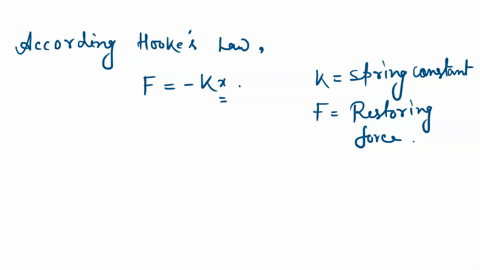 According Hooke's Law,
F = -Kx.
K = spring constant
F = Restoring
force.